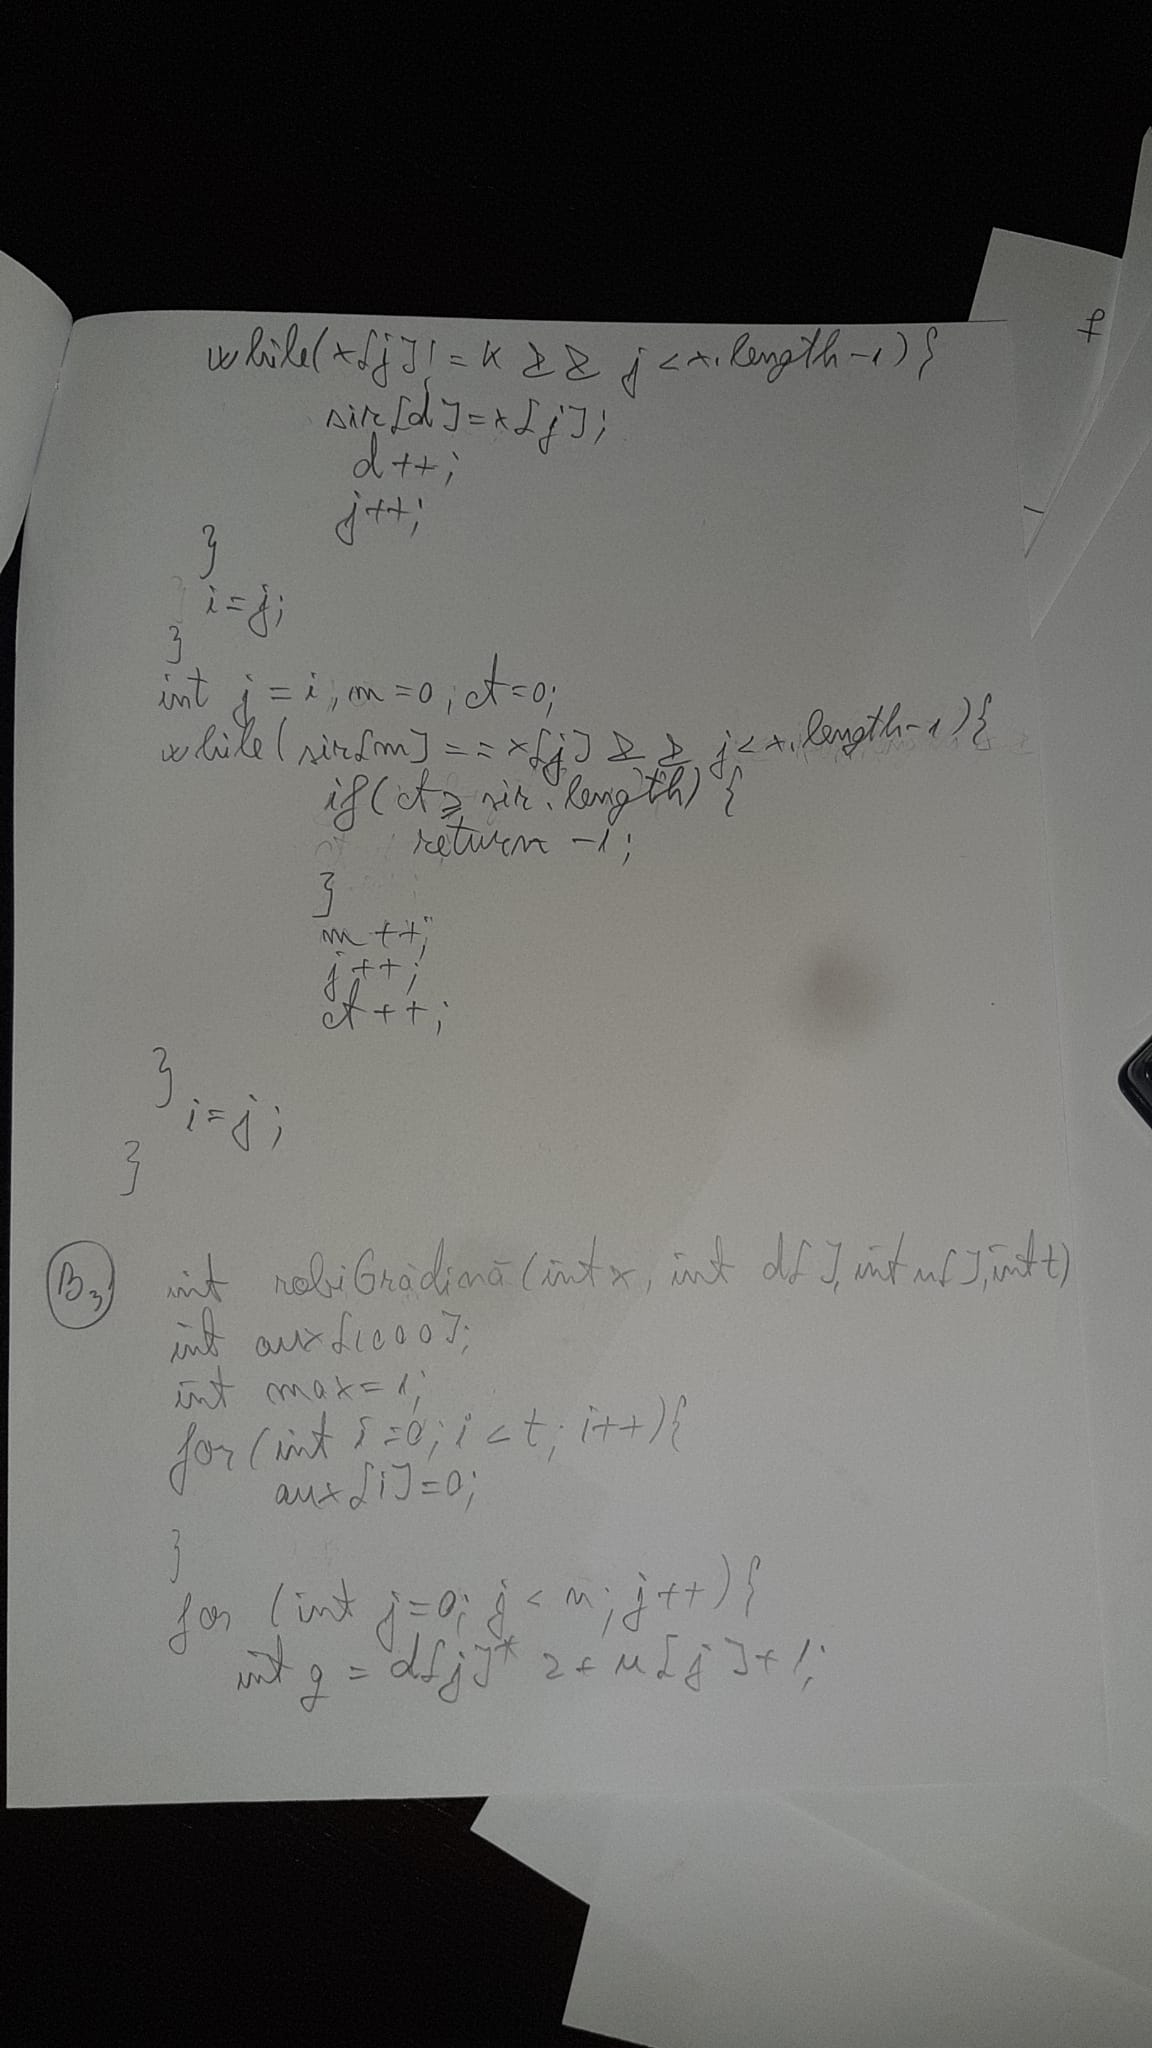 while(x[j]!=k && j<x.length-1){
sir[d]=x[j];
d++;
j++;
}
i=j;
}
int j=i, m=0, ct=0;
while(sir[m]==x[j] && j<x.length-1){
if(ct>=sir.length){
return -1;
}
m++;
j++;
ct++;
}
i=j;
}
B3 int robiGrădină(int x, int d[], int u[], int t)
int aux[1000];
int max=1;
for(int i=0; i<t; i++){
aux[i]=0;
}
for (int j=0; j<n; j++){
int g = d[j]*2+u[j]+1;
f